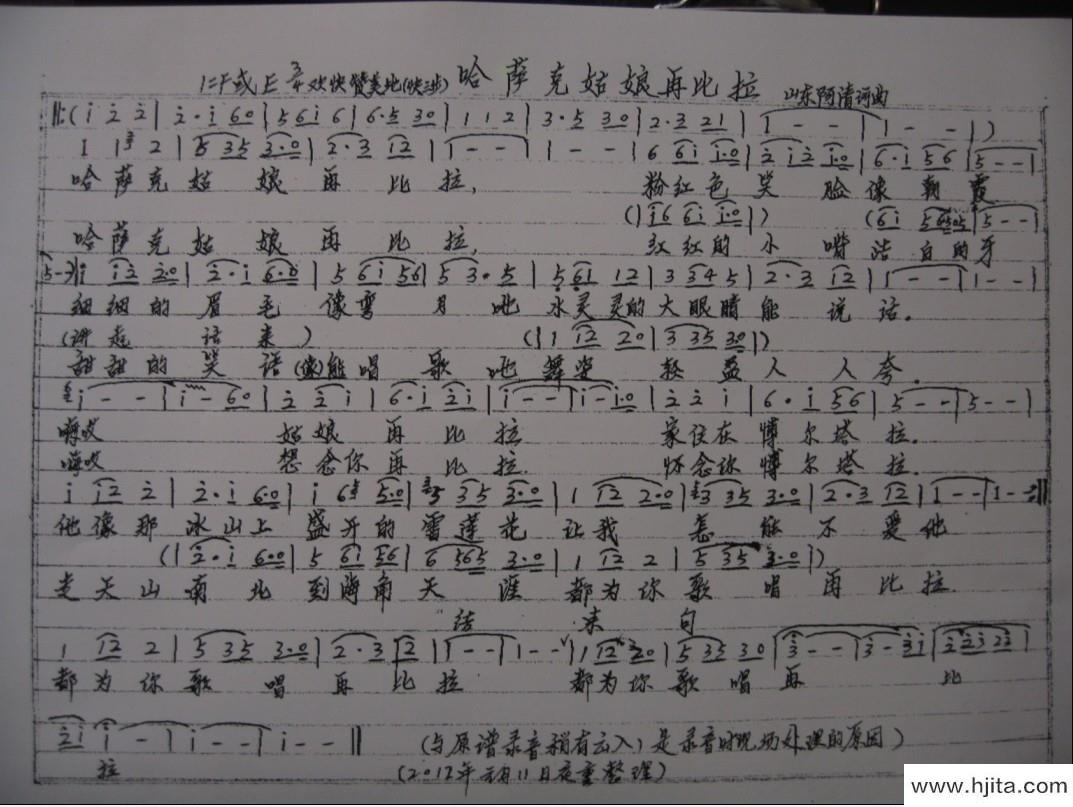 1=F或E 3/4 欢快赞美地(快三步) 哈萨克姑娘再比拉 山东阿清词曲
‖:(i 2 2 | 2·i 60 | 56i 6 | 6·5 30 | 1 1 2 | 3·5 30 | 2·3 21 | 1 - - | 1 - - |)
1 1 2 | 5 35 3·0 | 2·3 12 | 1 - - | 1 - - | 6 6i i·0 | 2 i2 i·0 | 6·i 56 | 5 - - |
哈萨克姑娘再比拉, 粉红色笑脸像朝霞
(|i6 6i i·0|) (6i 56505|5 - -|
哈萨克姑娘再比拉, 红红的小嘴洁白的牙
5 - -)|i i2 20 | 2·i 6·0 | 5 6i 56 | 5 3·5 | 5 61 12 | 3 34 5 | 2·3 12 | 1 - - | 1 - - |
细细的眉毛像弯月吔水灵灵的大眼睛能说话.
(讲起话来) (|1 12 20|3 35 30|)
甜甜的笑语(像)能唱歌吔舞姿轻盈人人夸.
i - - | i - 60 | 2 2 i | 6·i 2i | i - - | i - i·0 | 2 2 i | 6·i 56 | 5 - - | 5 - - |
嗨哎 姑娘再比拉 家住在博尔塔拉.
嗨哎 想念你再比拉. 怀念你博尔塔拉.
i i2 2 | 2·i 6·0 | i 6 5·0 | 5 35 3·0 | 1 12 2·0 | 3 35 3·0 | 2·3 12 | 1 - - | 1 - :‖
他像那冰山上盛开的雪莲花让我怎能不爱他
(|2·i 6·0 | 5 6i 56 | 6 565 3·0 | 1 12 2 | 5 35 3·0|)
走天山南北到海角天涯都为你歌唱再比拉.
结束句
1 12 2 | 5 35 3·0 | 2·3 12 | 1 - - | 1 - - | 1 12 20 | 5 35 30 | 3 - - | 3 - 3i | 22i 23 |
都为你歌唱再比拉 都为你歌唱再比
2i i - | i - - | i - - ‖ (与原谱录音稍有出入)是录音时现场处理的原因)
拉 (2012年元月11日夜重整理)
www.hjita.com